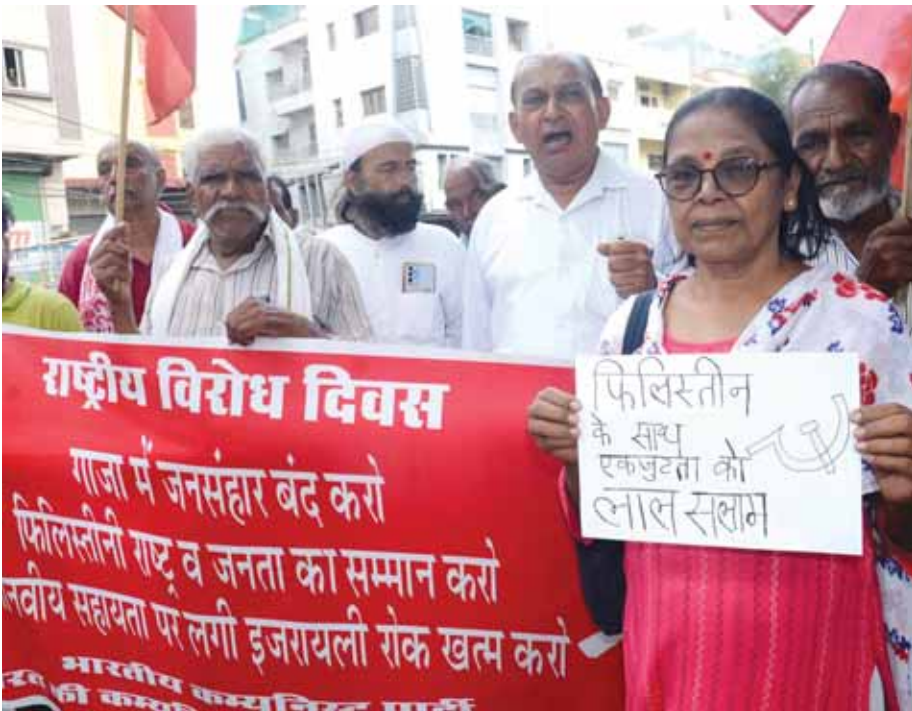 राष्ट्रीय विरोध दिवस
गाजा में जनसंहार बंद करो
फिलिस्तीनी राष्ट्र व जनता का सम्मान करो
सहायता पर लगी इजरायली रोक खत्म करो
भारतीय कम्युनिस्ट पार्टी
की
फिलिस्तीन
के साथ
एकजुटता को
लाल सलाम